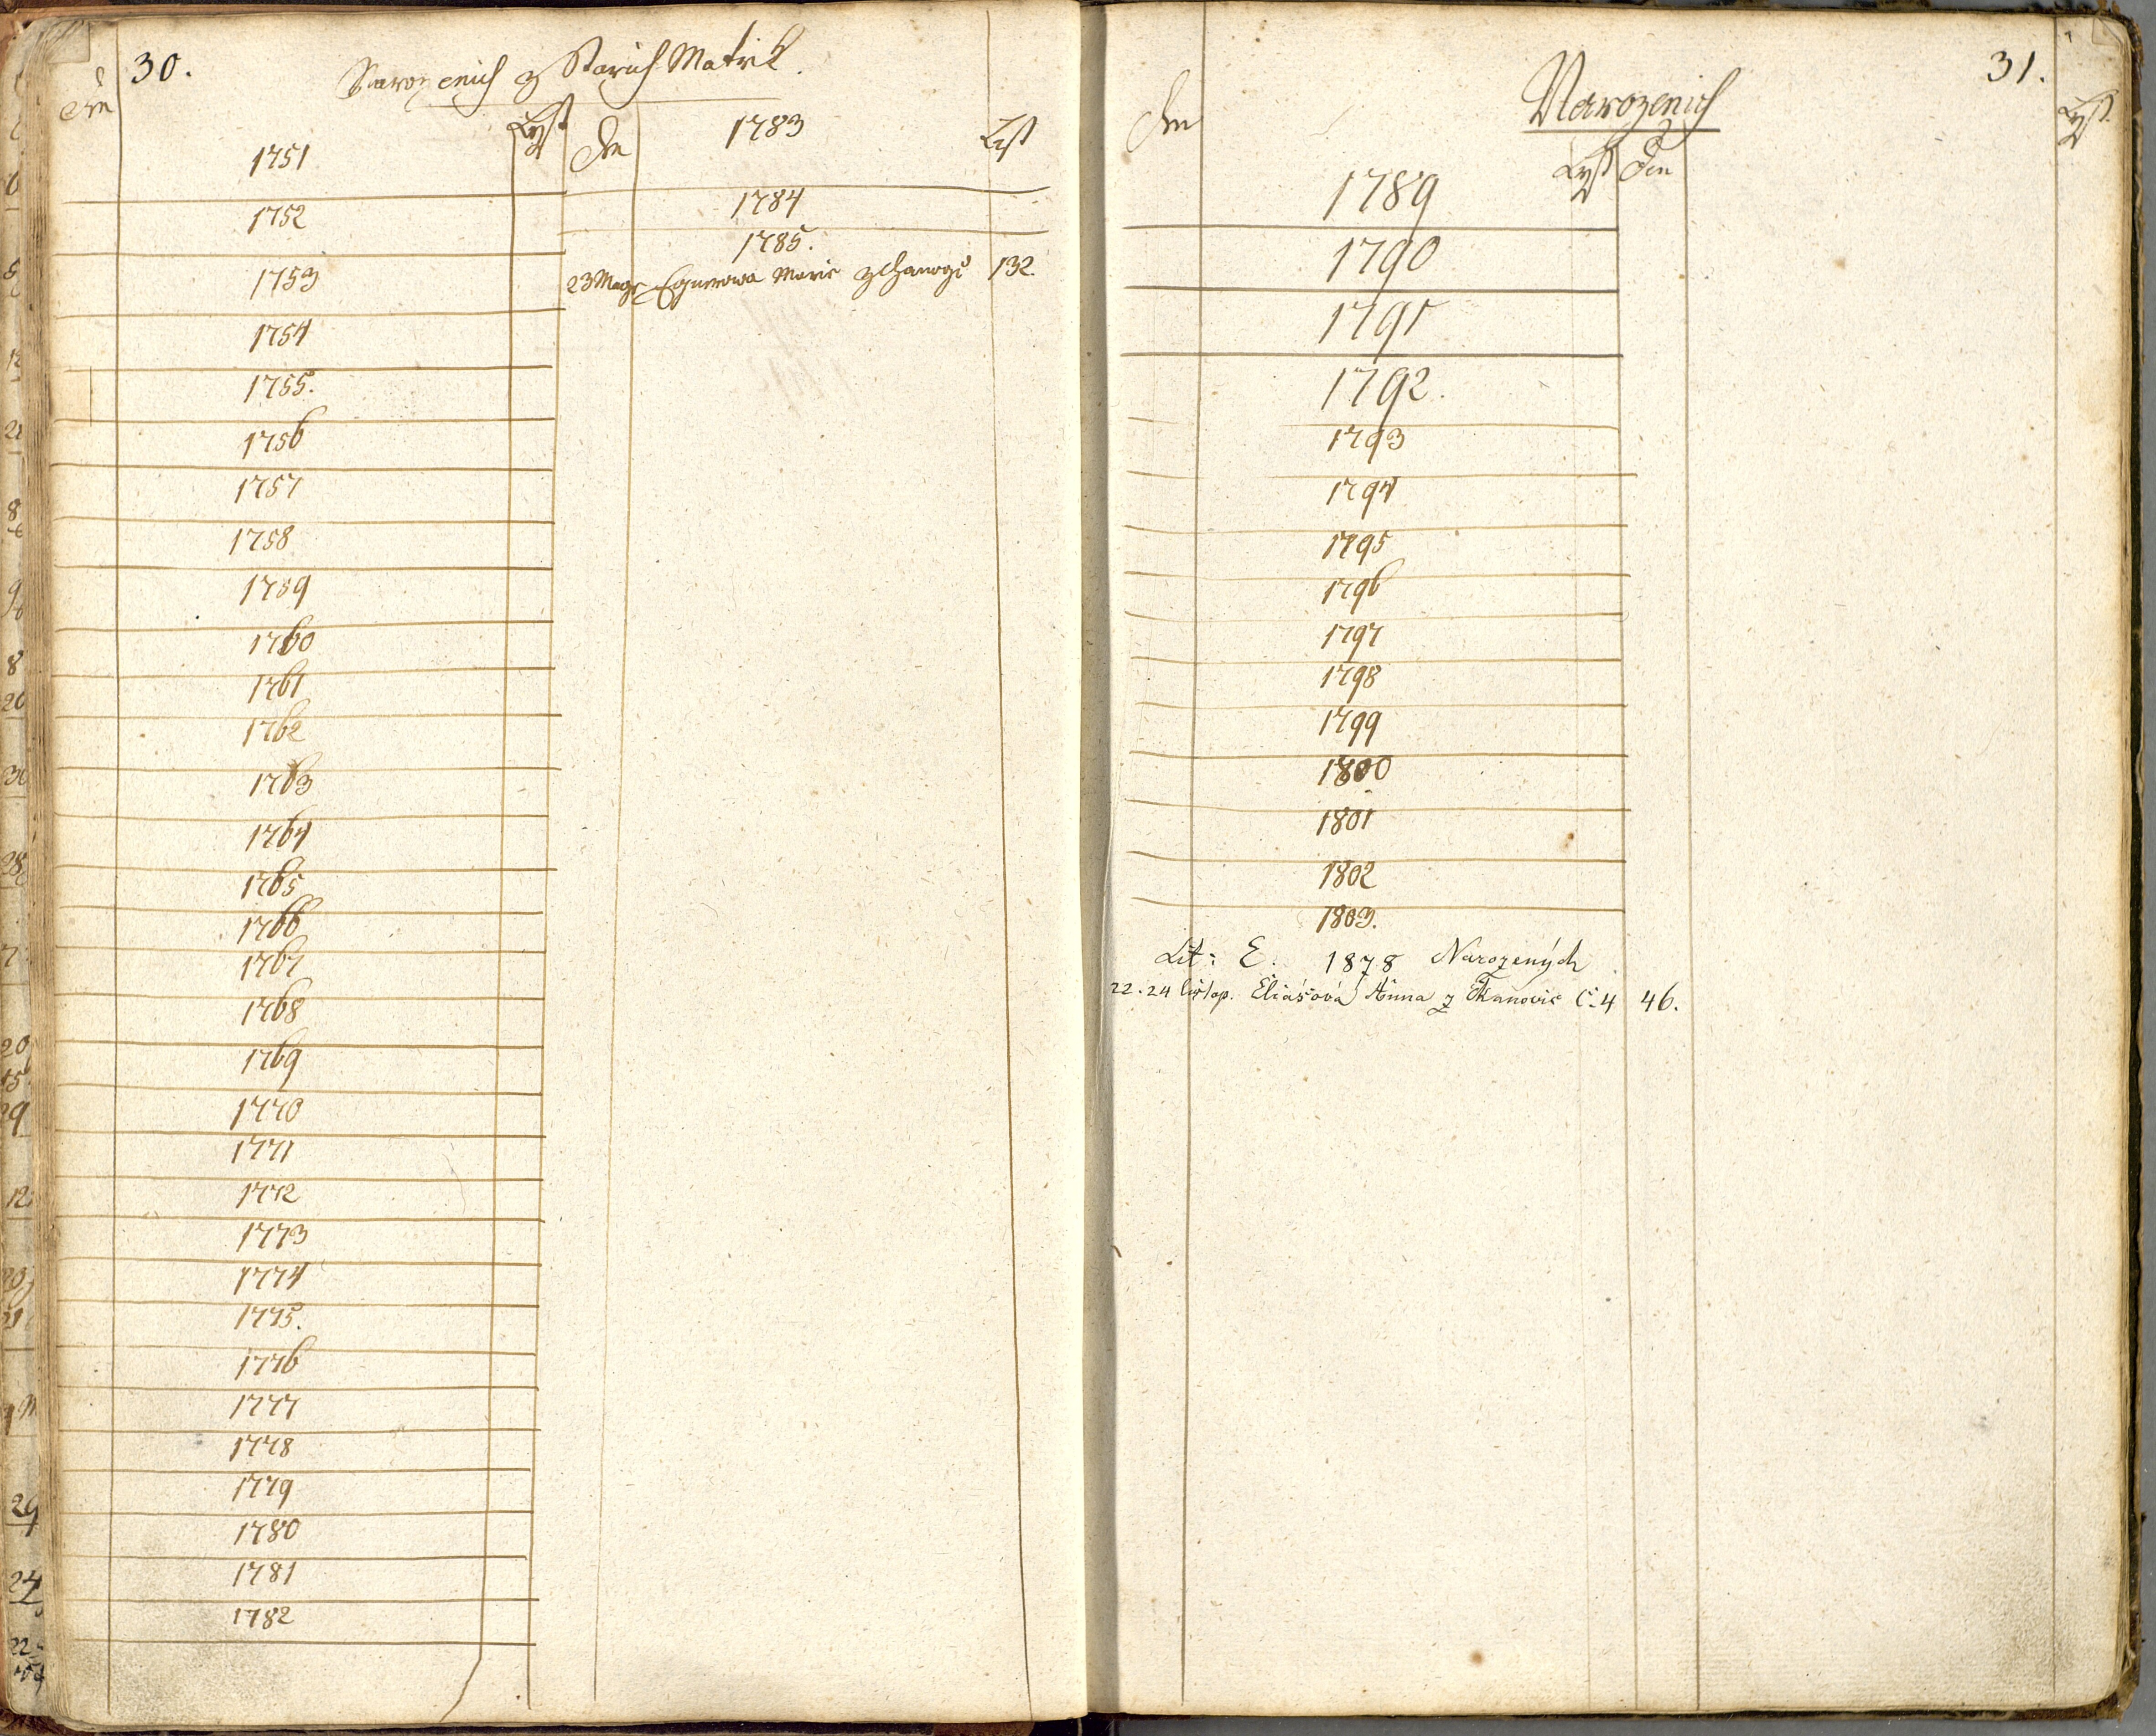 30.
Narozenich z Starich Matrik.
Den
Lyst
1751
1752
1753
1754
1755.
1756
1757
1758
1759
1760
1761
1762
1763
1764
1765
1766
1767
1768
1769
1770
1771
1772
1773
1774
1775.
1776
1777
1778
1779
1780
1781
1782
Den
1783
Lyst
1784
1785.
23 Marie 132.
31.
Narozenich
Den
Lyst
Den
Lyst
1789
1790
1791
1792.
1793
1794
1795
1796
1797
1798
1799
1800
1801
1802
1803.
Lit: E. 1878 Narozených
22. 24 listop. Eliášová Anna z Č. 4 46.